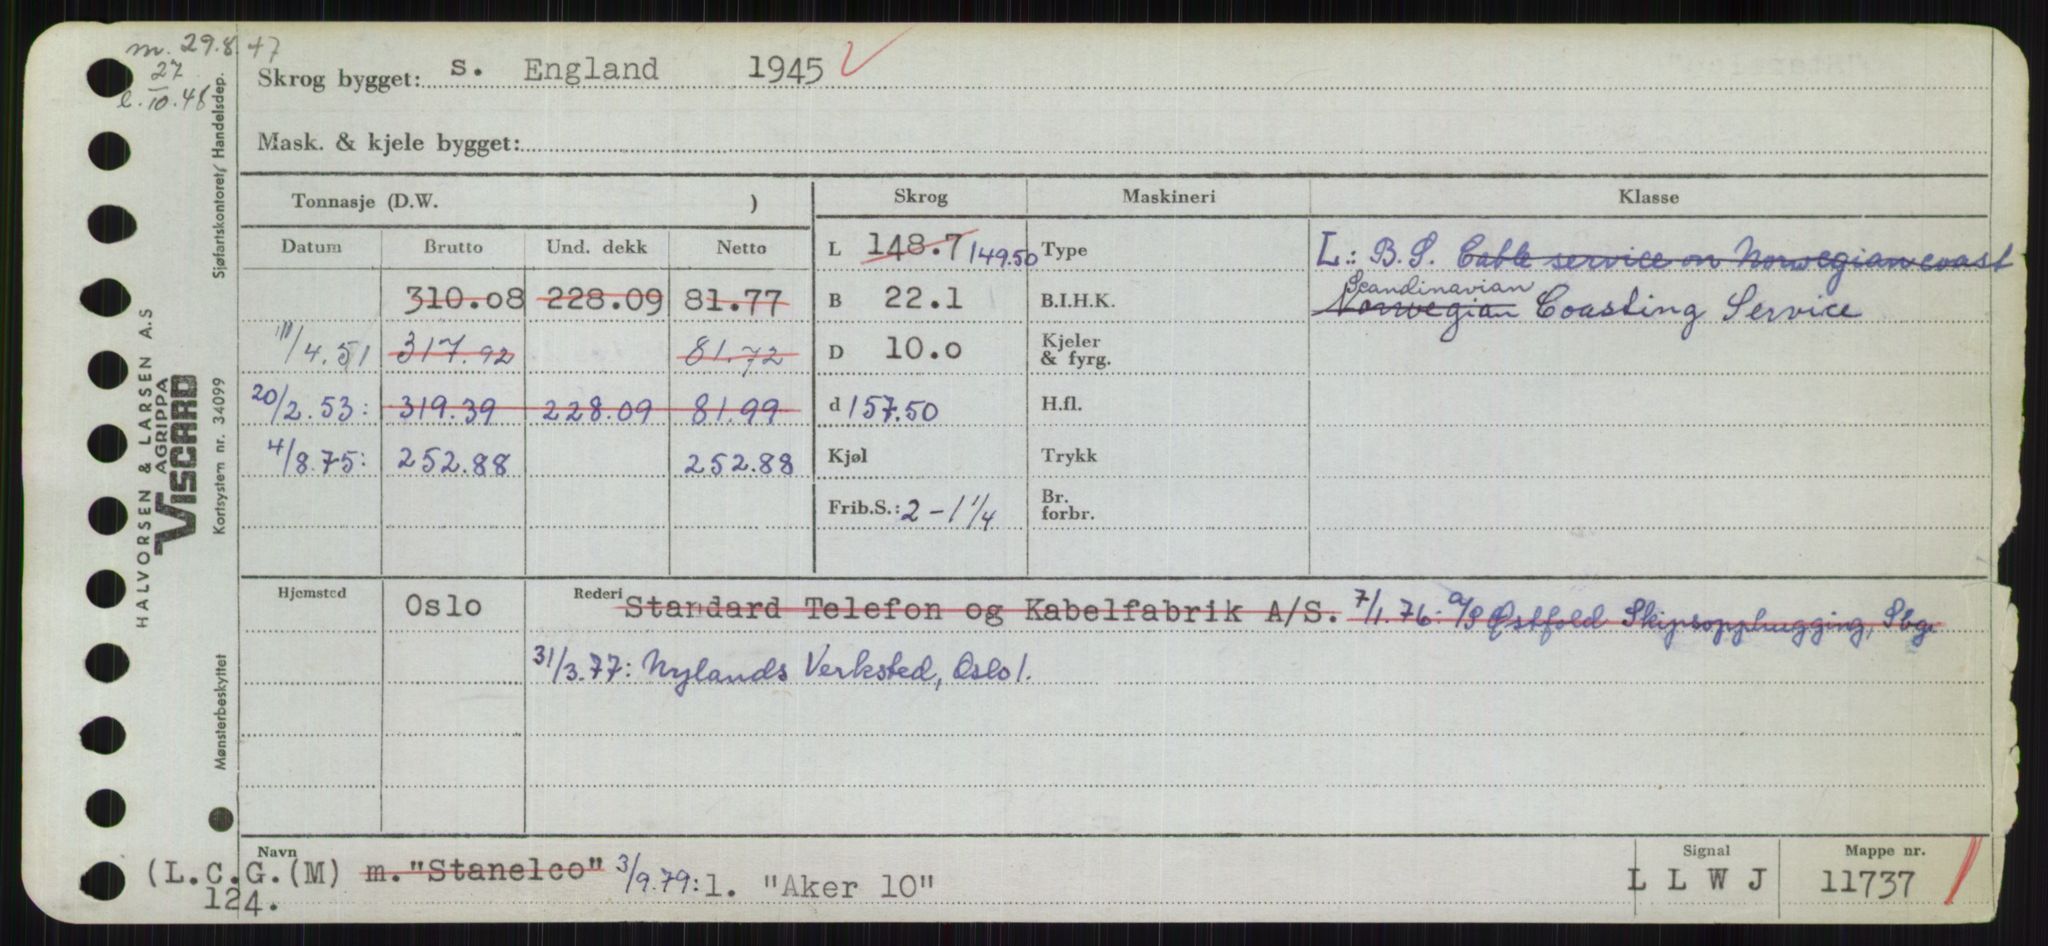 m. 29.8.47
27
l. 10.48
Skrog bygget: s. England 1945
Mask. & kjele bygget:
Tonnasje (D.W. )
Skrog Maskineri Klasse
Datum Brutto Und. dekk Netto
L 148.7 149.50 Type L: B.S. Cable service on Norwegian coast
310.08 228.09 81.77 B 22.1 B.I.H.K. Scandinavian
Norwegian Coasting Service
11/4.51 317.92 81.72 D 10.0 Kjeler
& fyrg.
20/2.53: 319.39 228.09 81.99 d 157.50 H.fl.
4/8.75: 252.88 252.88 Kjøl Trykk
Frib.S.: 2-1 1/4 Br.
forbr.
Hjemsted Oslo Rederi Standard Telefon og Kabelfabrik A/S. 7/1.76: A/S Østfold Skipsopphugging, Sbg.
31/3.77: Nylands Verksted, Oslo 1.
Navn Signal Mappe nr.
(L.C.G.(M) m. "Stanelco" 3/9.79: l. "Aker 10" L L W J 11737
124.
HALVORSEN & LARSEN A.S
AGRIPPA
VISCARD
Mønsterbeskyttet Kortsystem nr. 34099 Sjøfartskontoret/ Handelsdep.